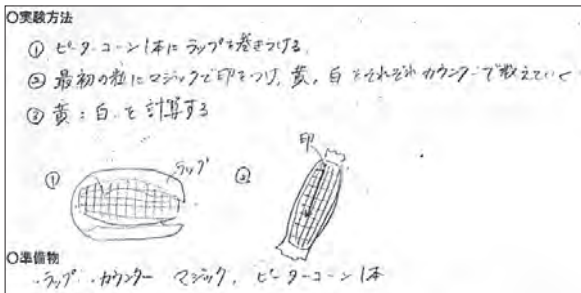 ○実験方法
① ピーターコーン1本にラップを巻きつける。
② 最初の粒にマジックで印をつけ、黄、白をそれぞれカウンターで数えていく
③ 黄:白 を計算する
① ラップ ② 印
○準備物
・ラップ ・カウンター マジック、ピーターコーン1本